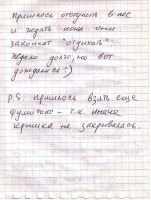 Пришлось отступить в лес
и ждать пока они
закончат "отдыхать"
Ждали долго, но вот
дождались :)
P.S. пришлось взять ещё
- т.к. иначе
крышка не закрывалась.